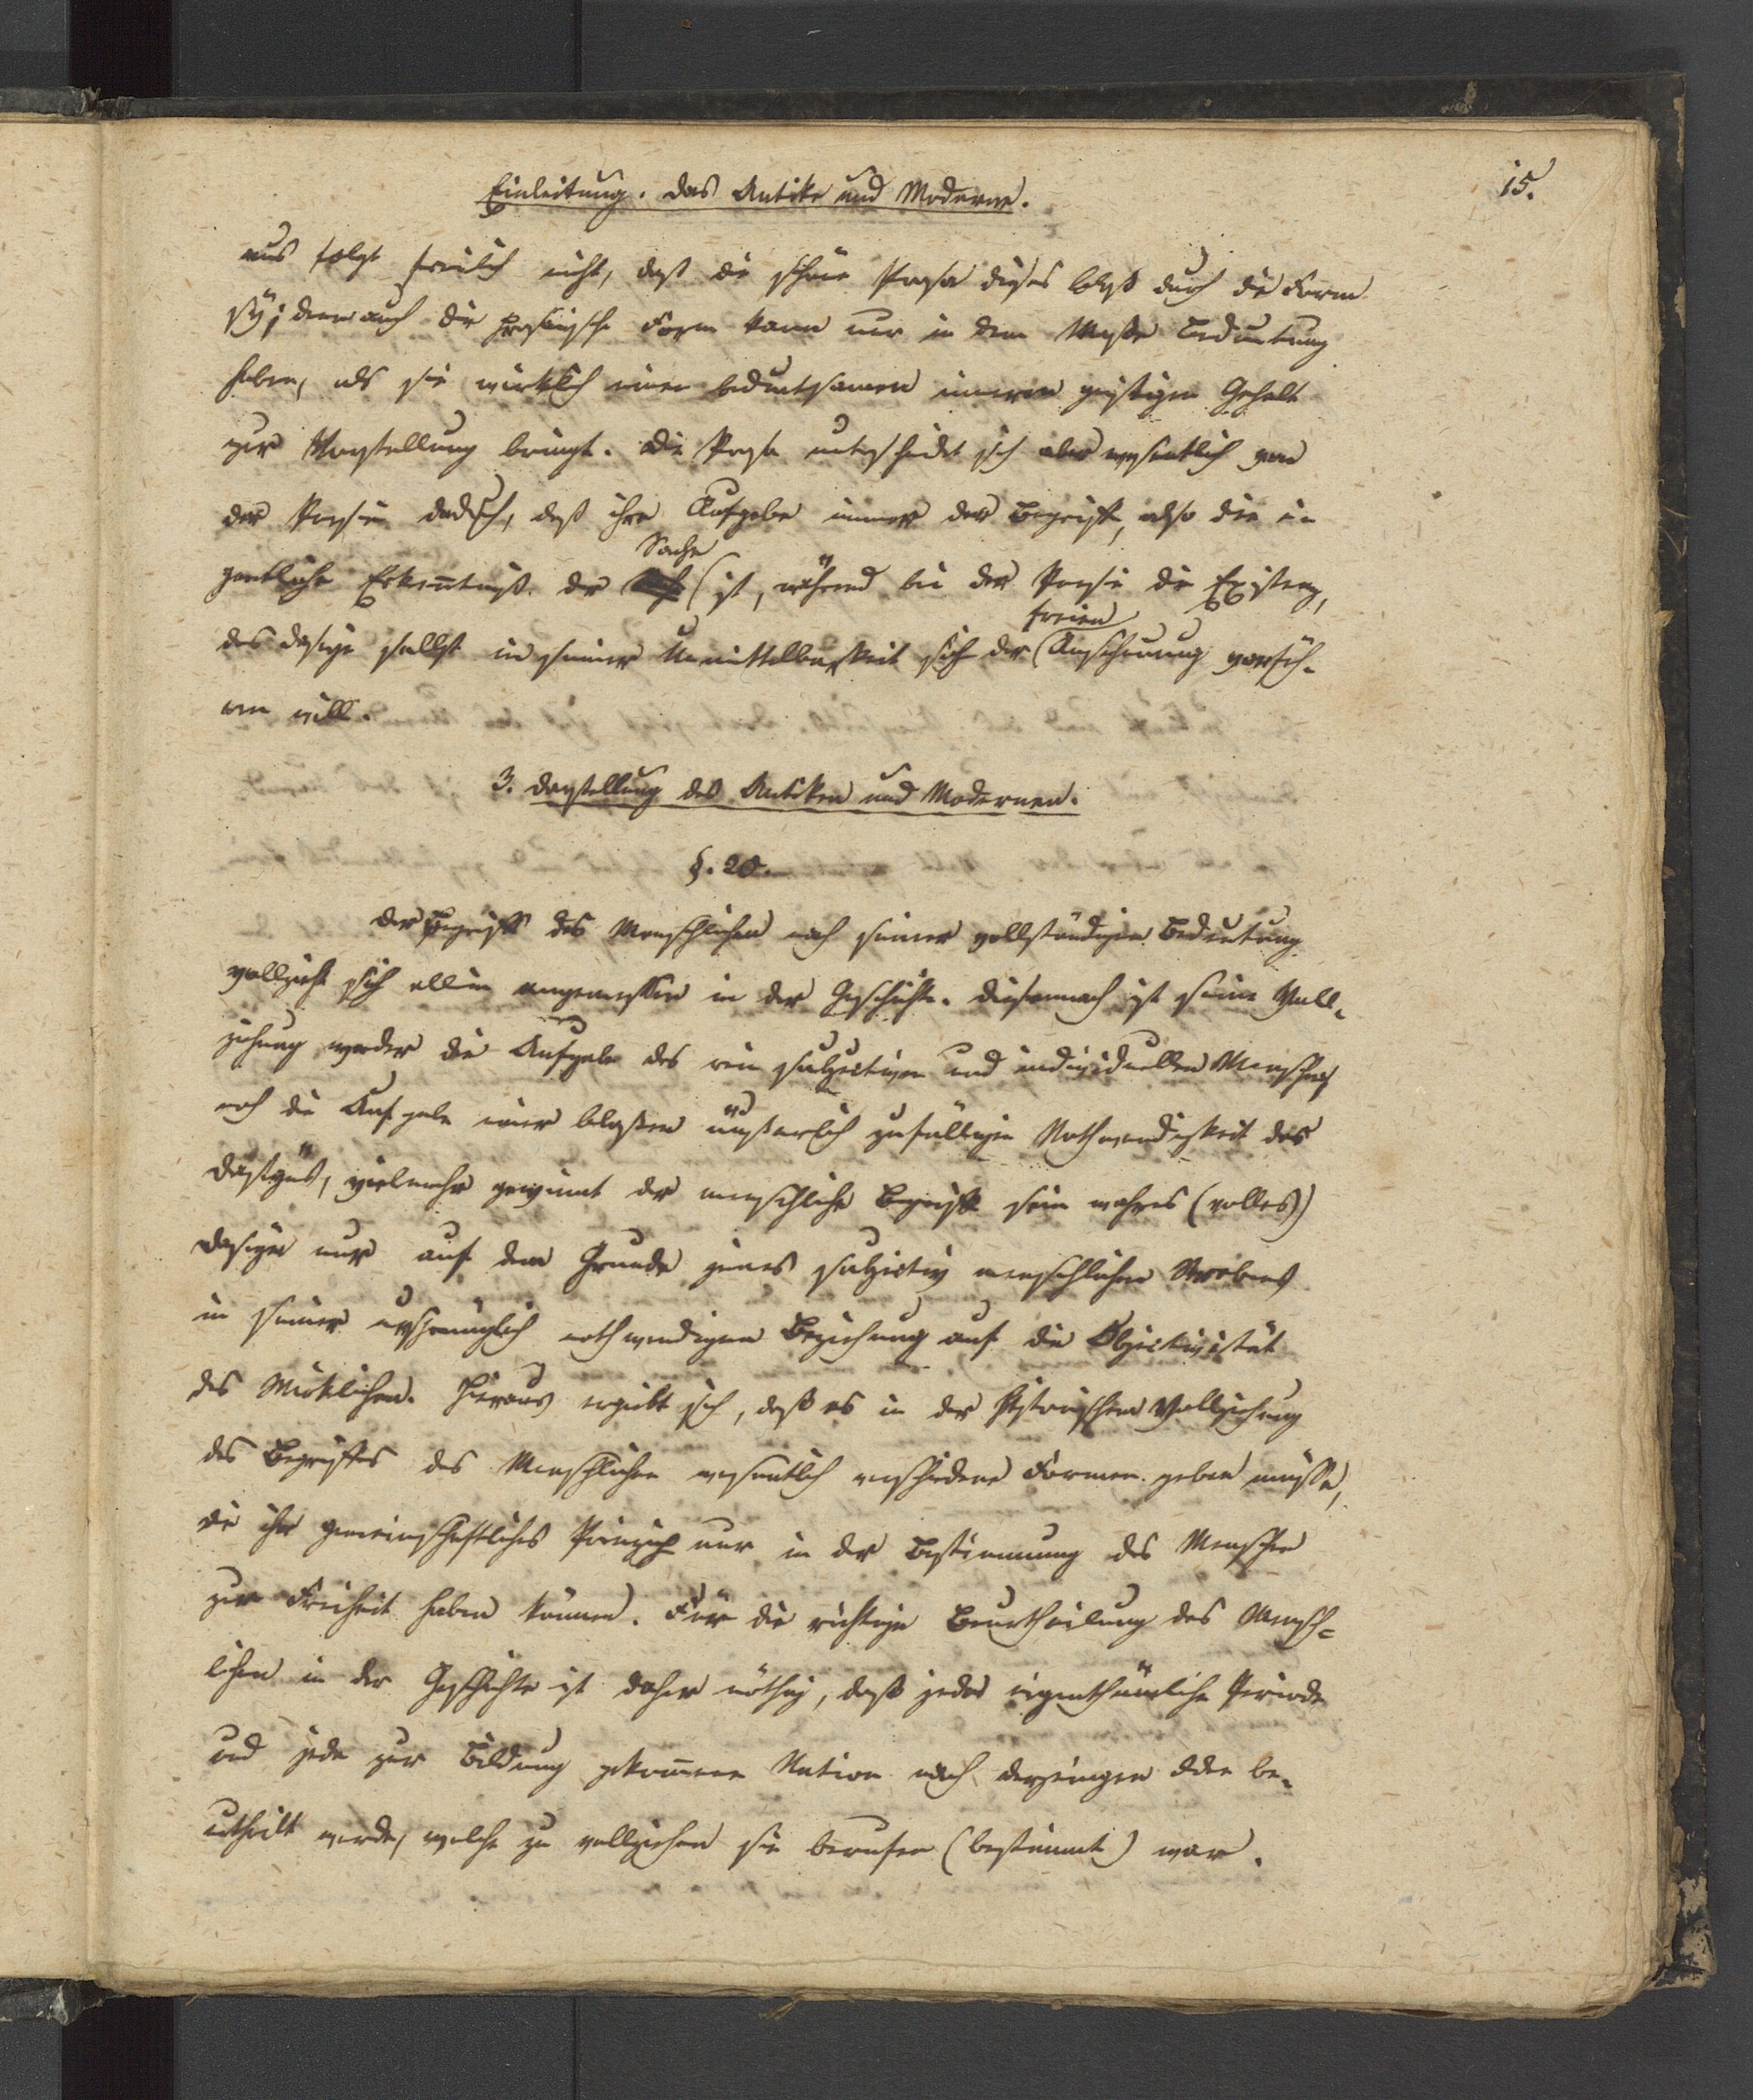 15.
Einleitung. Das Antike und Moderne.
aus folgt freilich nicht, daß die schöne Prosa dieses bloß durch die Form
sey; denn auch die prosaische Form kann nur in dem Maße Bedeutung
haben, als sie wirklich einen bedeutsamen inneren geistigen Gehalt
zur Vorstellung bringt. Die Prosa unterscheidet sich aber wesentlich von
der Poesie dadurch, daß ihre Aufgabe immer der Begriff, also die ei-
Sache
gentliche Erkenntniß der ist, während bei der Poesie die Existenz,
freien
das Daseyn selbst in seiner Unmittelbarkeit sich der Anschauung vorfüh-
ren will.
3. Darstellung des Antiken und Modernen.
§. 20.
Der Begriff des Menschlichen nach seiner vollständigen Bedeutung
vollzieht sich allein angemessen in der Geschichte. Diesemnach ist seine Voll-
ziehung weder die Aufgabe des rein subjectiven und individuellen Menschen
noch die Aufgabe einer bloßen äußerlich zufälligen Nothwendigkeit des
Daseyns, vielmehr gewinnt der menschliche Begriff sein wahres (volles)
Daseyn nur auf dem Grunde jenes subjectiv menschlichen Strebens
in seiner ursprünglich nothwendigen Beziehung auf die Objectivität
des Wirklichen. Hieraus ergibt sich, daß es in der historischen Vollziehung
des Begriffes des Menschlichen wesentlich verschiedene Formen geben müsse,
die ihr gemeinschaftliches Prinzip nur in der Bestimmung des Menschen
zur Freiheit haben können. Für die richtige Beurtheilung des Mensch-
lichen in der Geschichte ist daher nöthig, daß jede eigenthümliche Periode
und jede zur Bildung gekommene Nation nach derjenigen Idee be-
urtheilt werde, welche zu vollziehen sie berufen (bestimmt) war.